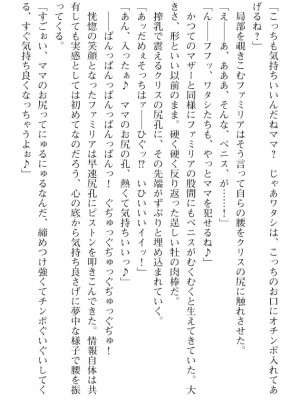 「こっちも気持ちいいんだねママ？　じゃあワタシは、こっちのお口にオチンポ入れてあ
げるね？」
局部を覗きこむファミリアはそう言って自らの腰をクリスの尻に触れさせた。
「え、あ、ああああ、そんな、ペニス、が……！」
「ん――フフッ、ワタシたちも、やっとママを犯せるね♪」
かつてのマザーと同様にファミリアの股間にもペニスがむくむくと生えてきていた。大
きさ、形といい以前のまま。硬く硬く反り返った逞しい牡の肉棒だ。
搾乳で震えるクリスの尻孔に、その先端がずぶりと埋め込まれていく。
「あっだめぇそっちはァ――ひぐッ!?　いひいいイイィッ！」
「あん、入ったぁ♪　ママのお尻の孔、熱くて気持ちいいっ♪」
――ぱんっぱんっぱんっ！　ぐぢゅっぐぢゅっぐぢゅっぐぢゅ！
恍惚の笑顔となったファミリアは早速尻孔にピストンを叩きこんできた。情報自体は共
有しても実感としては初めてなのだろう、心の底から気持ち良さげに夢中な様子で腰を振
ってくる。
「すごぉい、ママのお尻ってにゅるにゅるなんだ、締めつけ強くてチンポぐいぐいしてく
る、すぐ気持ち良くなっちゃうよぉ♪」